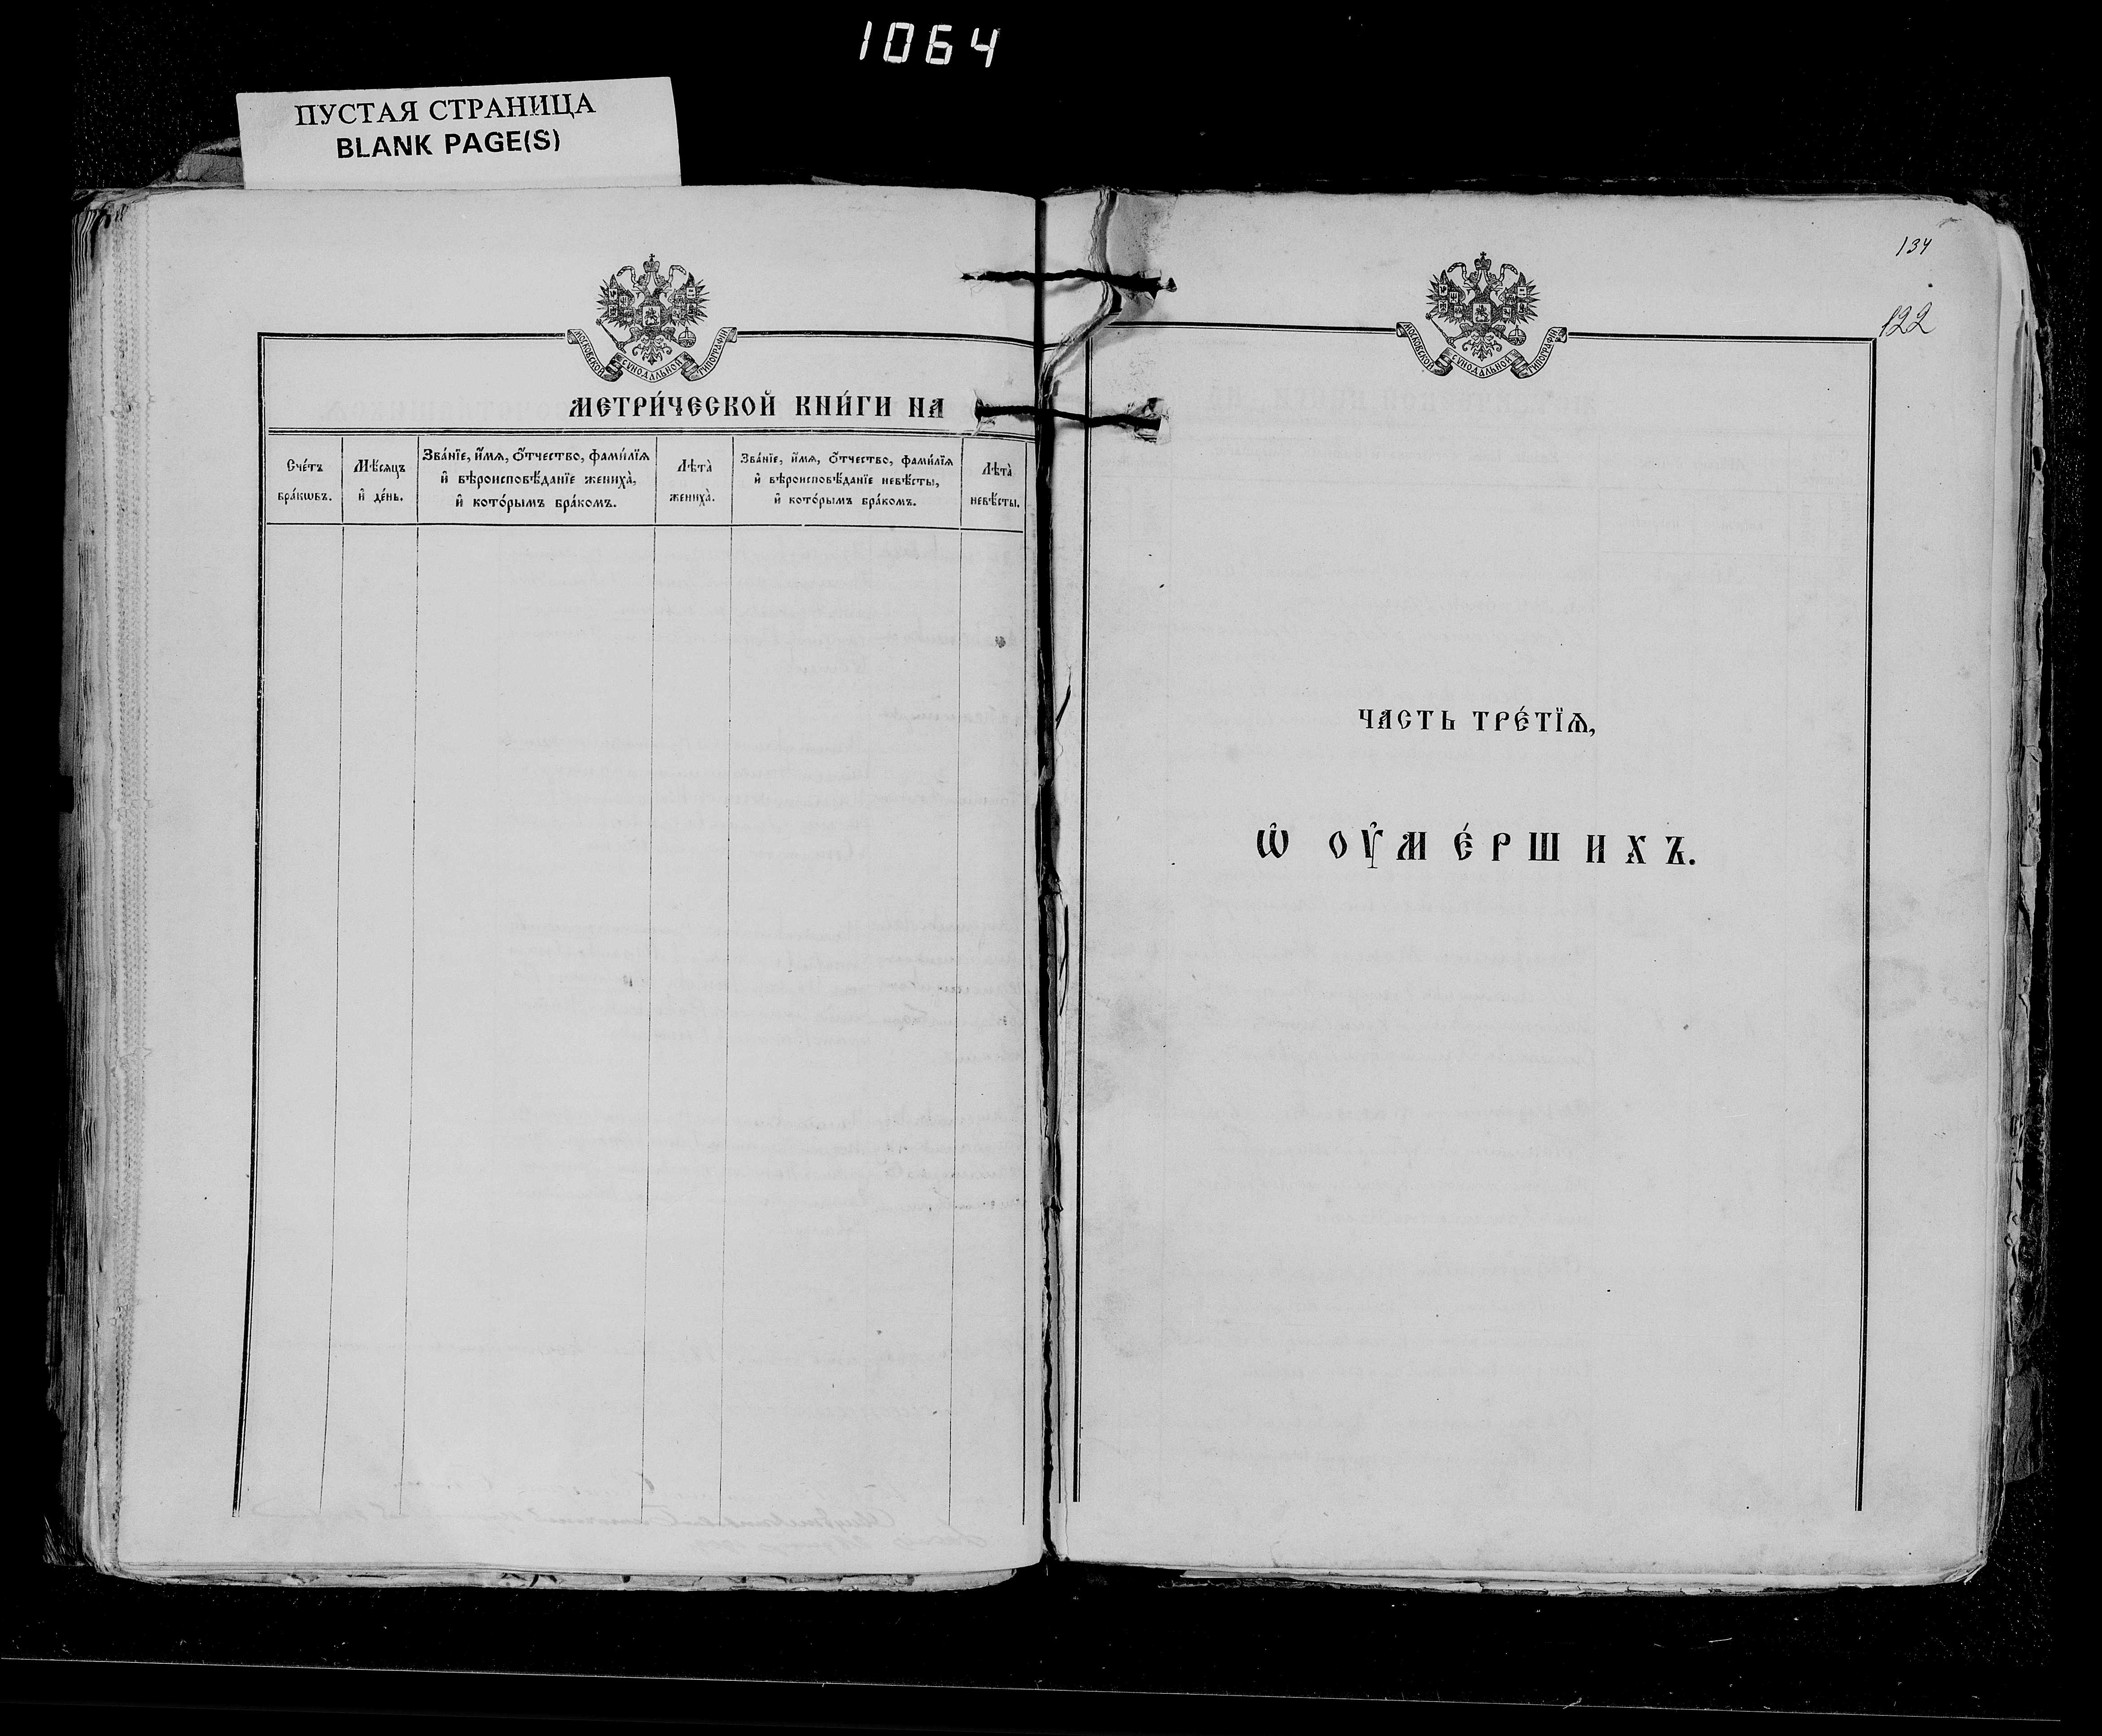 1064
ПУСТАЯ СТРАНИЦА
BLANK PAGE(S)
МОСКОВСКОЙ СѴНОДАЛЬНОЙ ТИПОГРАФІИ
МЕТРИ́ЧЕСКОЙ КНИ́ГИ НА
Сче́тъ бра́кѡвъ.
Мѣ́сяцъ и҆ де́нь.
Зва́нїе, и҆́мѧ, ѻ҆́тчество, фами́лїѧ
и҆ вѣроисповѣ́данїе жениха̀,
и҆ кото́рымъ бра́комъ.
Лѣта̀ жениха̀.
Зва́нїе, и҆́мѧ, ѻ҆́тчество, фами́лїѧ
и҆ вѣроисповѣ́данїе невѣ́сты,
и҆ кото́рымъ бра́комъ.
Лѣта̀ невѣ́сты.
134
122
МОСКОВСКОЙ СѴНОДАЛЬНОЙ ТИПОГРАФІИ
ЧАСТЬ ТРЕ́ТЇѦ,
Ѡ҆ ОУ҆МЕ́РШИХЪ.